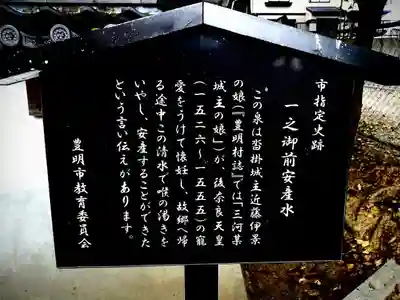 市指定史跡
一之御前安産水
この泉は沓掛城主近藤伊景
の娘(『豊明村誌』では「三河某
城主の娘」)が、後奈良天皇
(一五二六~一五五五)の寵
愛をうけて懐妊し、故郷へ帰
る途中この清水で喉の渇きを
いやし、安産することができた
という言い伝えがあります。
豊明市教育委員会